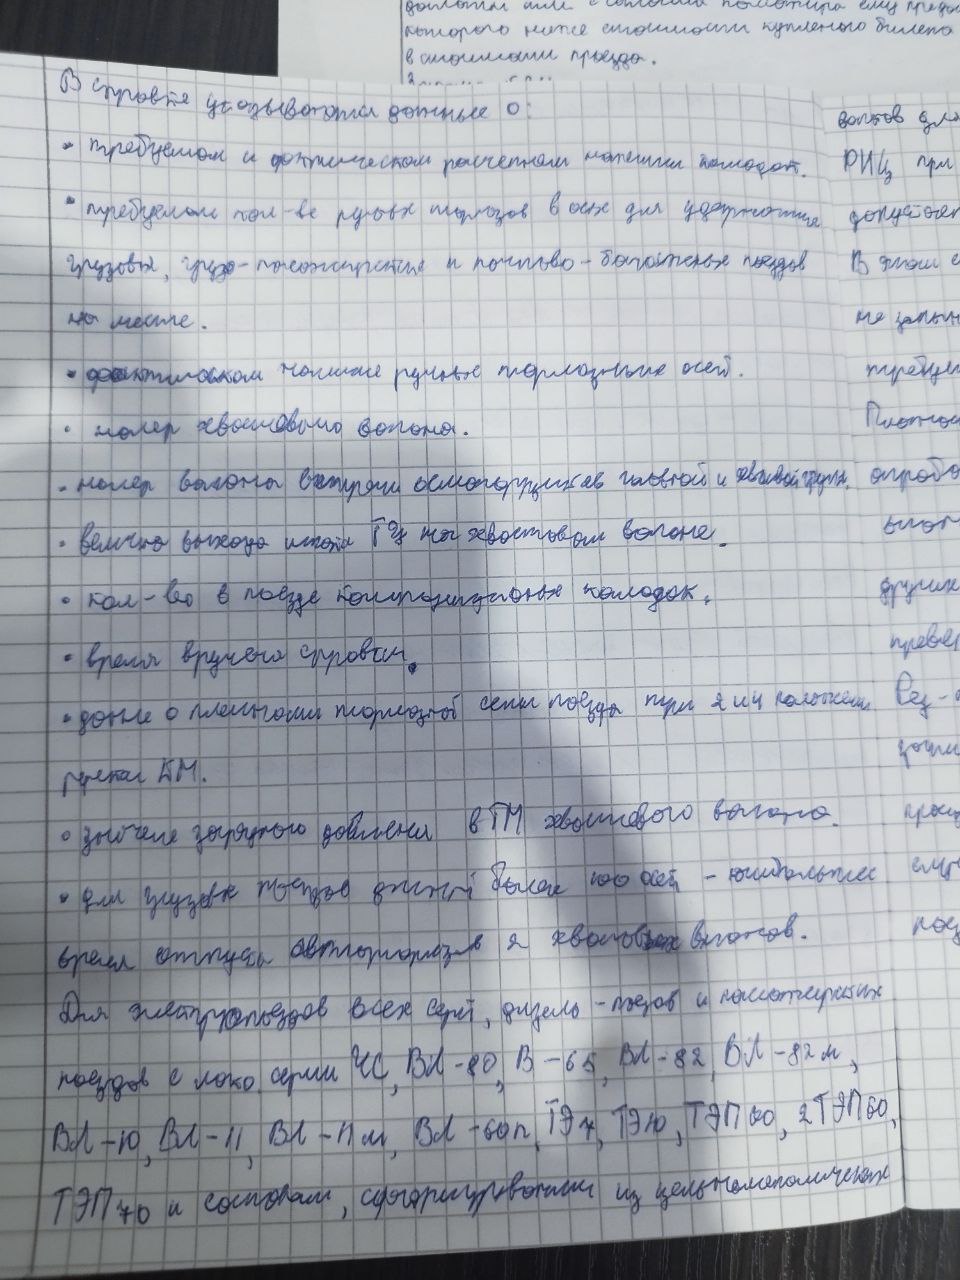 доплаты или с согласия пассажира ему предо
которого ниже стоимости купленого билета
в стоимости проезда.
В справке указываются данные о:
• требуемом и фактическом расчетном нажатии колодок.
• требуемом кол-ве ручных тормозов в осях для удержания
грузовых, грузо-пассажирских и почтово-багажных поездов
на месте.
• фактическом наличие ручных тормозных осей.
• номер хвостового вагона.
• номер вагона встречи осмоторщиков головной и хвостовой групп.
• величина выхода штока ТЦ на хвостовом вагоне.
• кол-во в поезде композиционных колодок.
• время вручения справки.
• данные о плотности тормозной сети поезда при 2 и 4 положении
ручки КМ.
• значение зарядного давления в ТМ хвостового вагона.
• для грузовых поездов длиной более 100 осей - наибольшее
время отпуска автотормозов 2 хвостовых вагонов.
Для электропоездов всех серий, дизель-поездов и пассажирских
поездов с локо. серии ЧС, ВЛ-80, ВЛ-82, ВЛ-82м,
ВЛ-10, ВЛ-11, ВЛ-11м, ВЛ-60п, ТЭ7, ТЭ10, ТЭП60, 2ТЭП60,
ТЭП70 и составам, сформированным из цельнометаллических
вагонов для
РИЦ при
допускает
В этом с
не запол
требуем
Плотнос
опробо
других
провер
Рез-
проц
поез